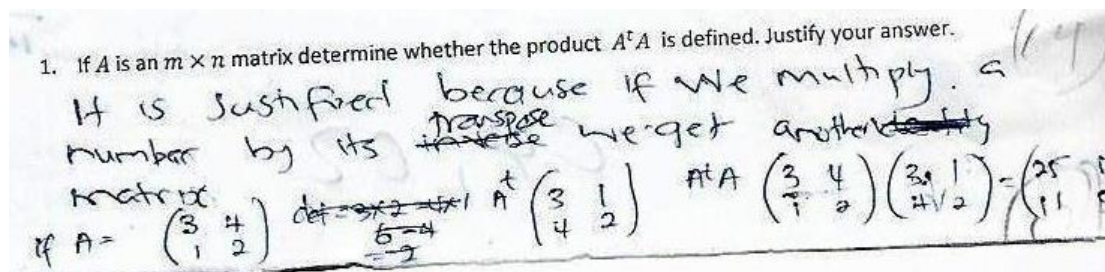 1. If A is an m × n matrix determine whether the product AᵗA is defined. Justify your answer.
It is Justified because if we multiply a
number by its transpose we get another
matrix
If A = (3 4 / 1 2) Aᵗ (3 1 / 4 2) AᵗA (3 4 / 1 2)(3 1 / 4 2) = (25